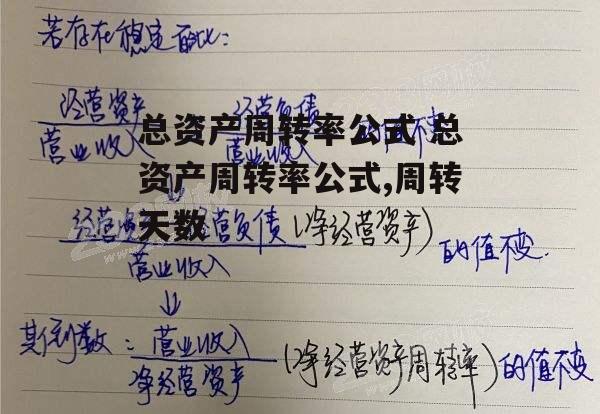 若存在稳定百比:
经营资产 经营负债
营业收入 营业收入 的值不变
总资产周转率公式 总
资产周转率公式,周转
天数
经营资 经营负债(净经营资产) 的值不变.
营业收入
其倒数: 营业收入 (净经营资产周转率)的值不变
净经营资产